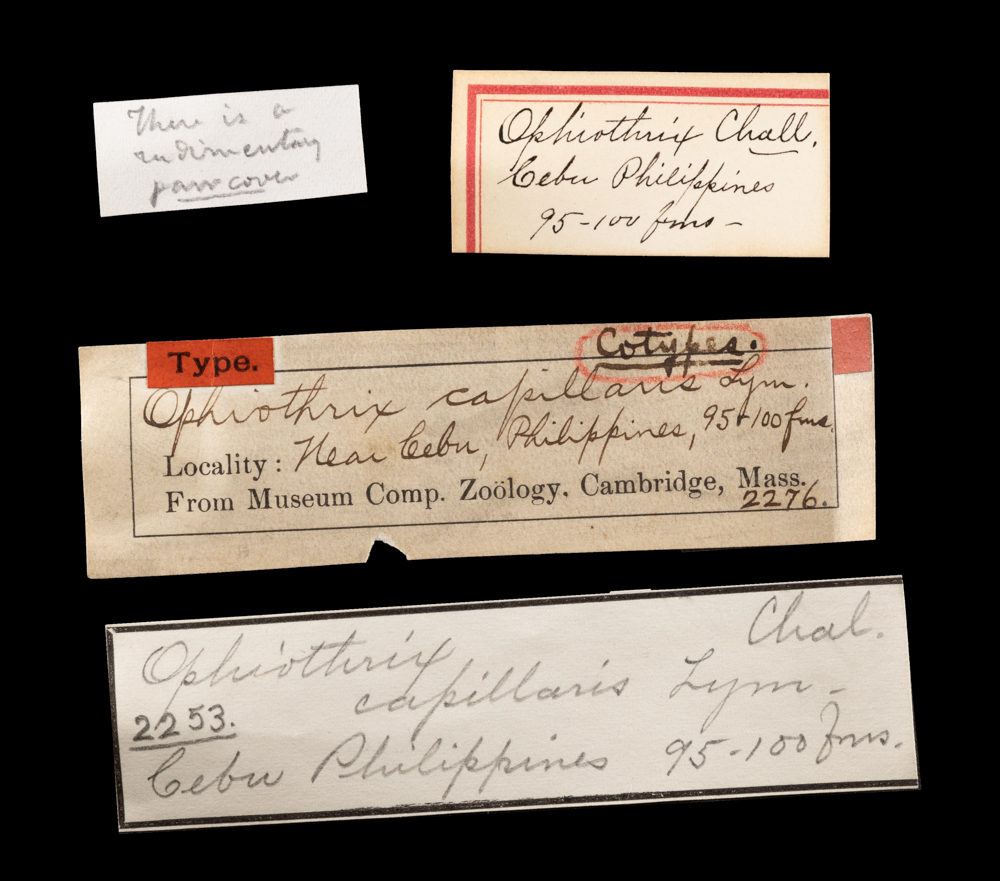 There is a
rudimentary
Ophiothrix Chall.
Cebu Philippines
95-100 fms-
Type.
Cotypes.
Ophiothrix capillaris Lym.
Locality: Near Cebu, Philippines, 95-100 fms.
From Museum Comp. Zoölogy. Cambridge, Mass.
2276.
Chal.
Ophiothrix
capillaris Lym-
2253.
Cebu Philippines 95-100 fms.